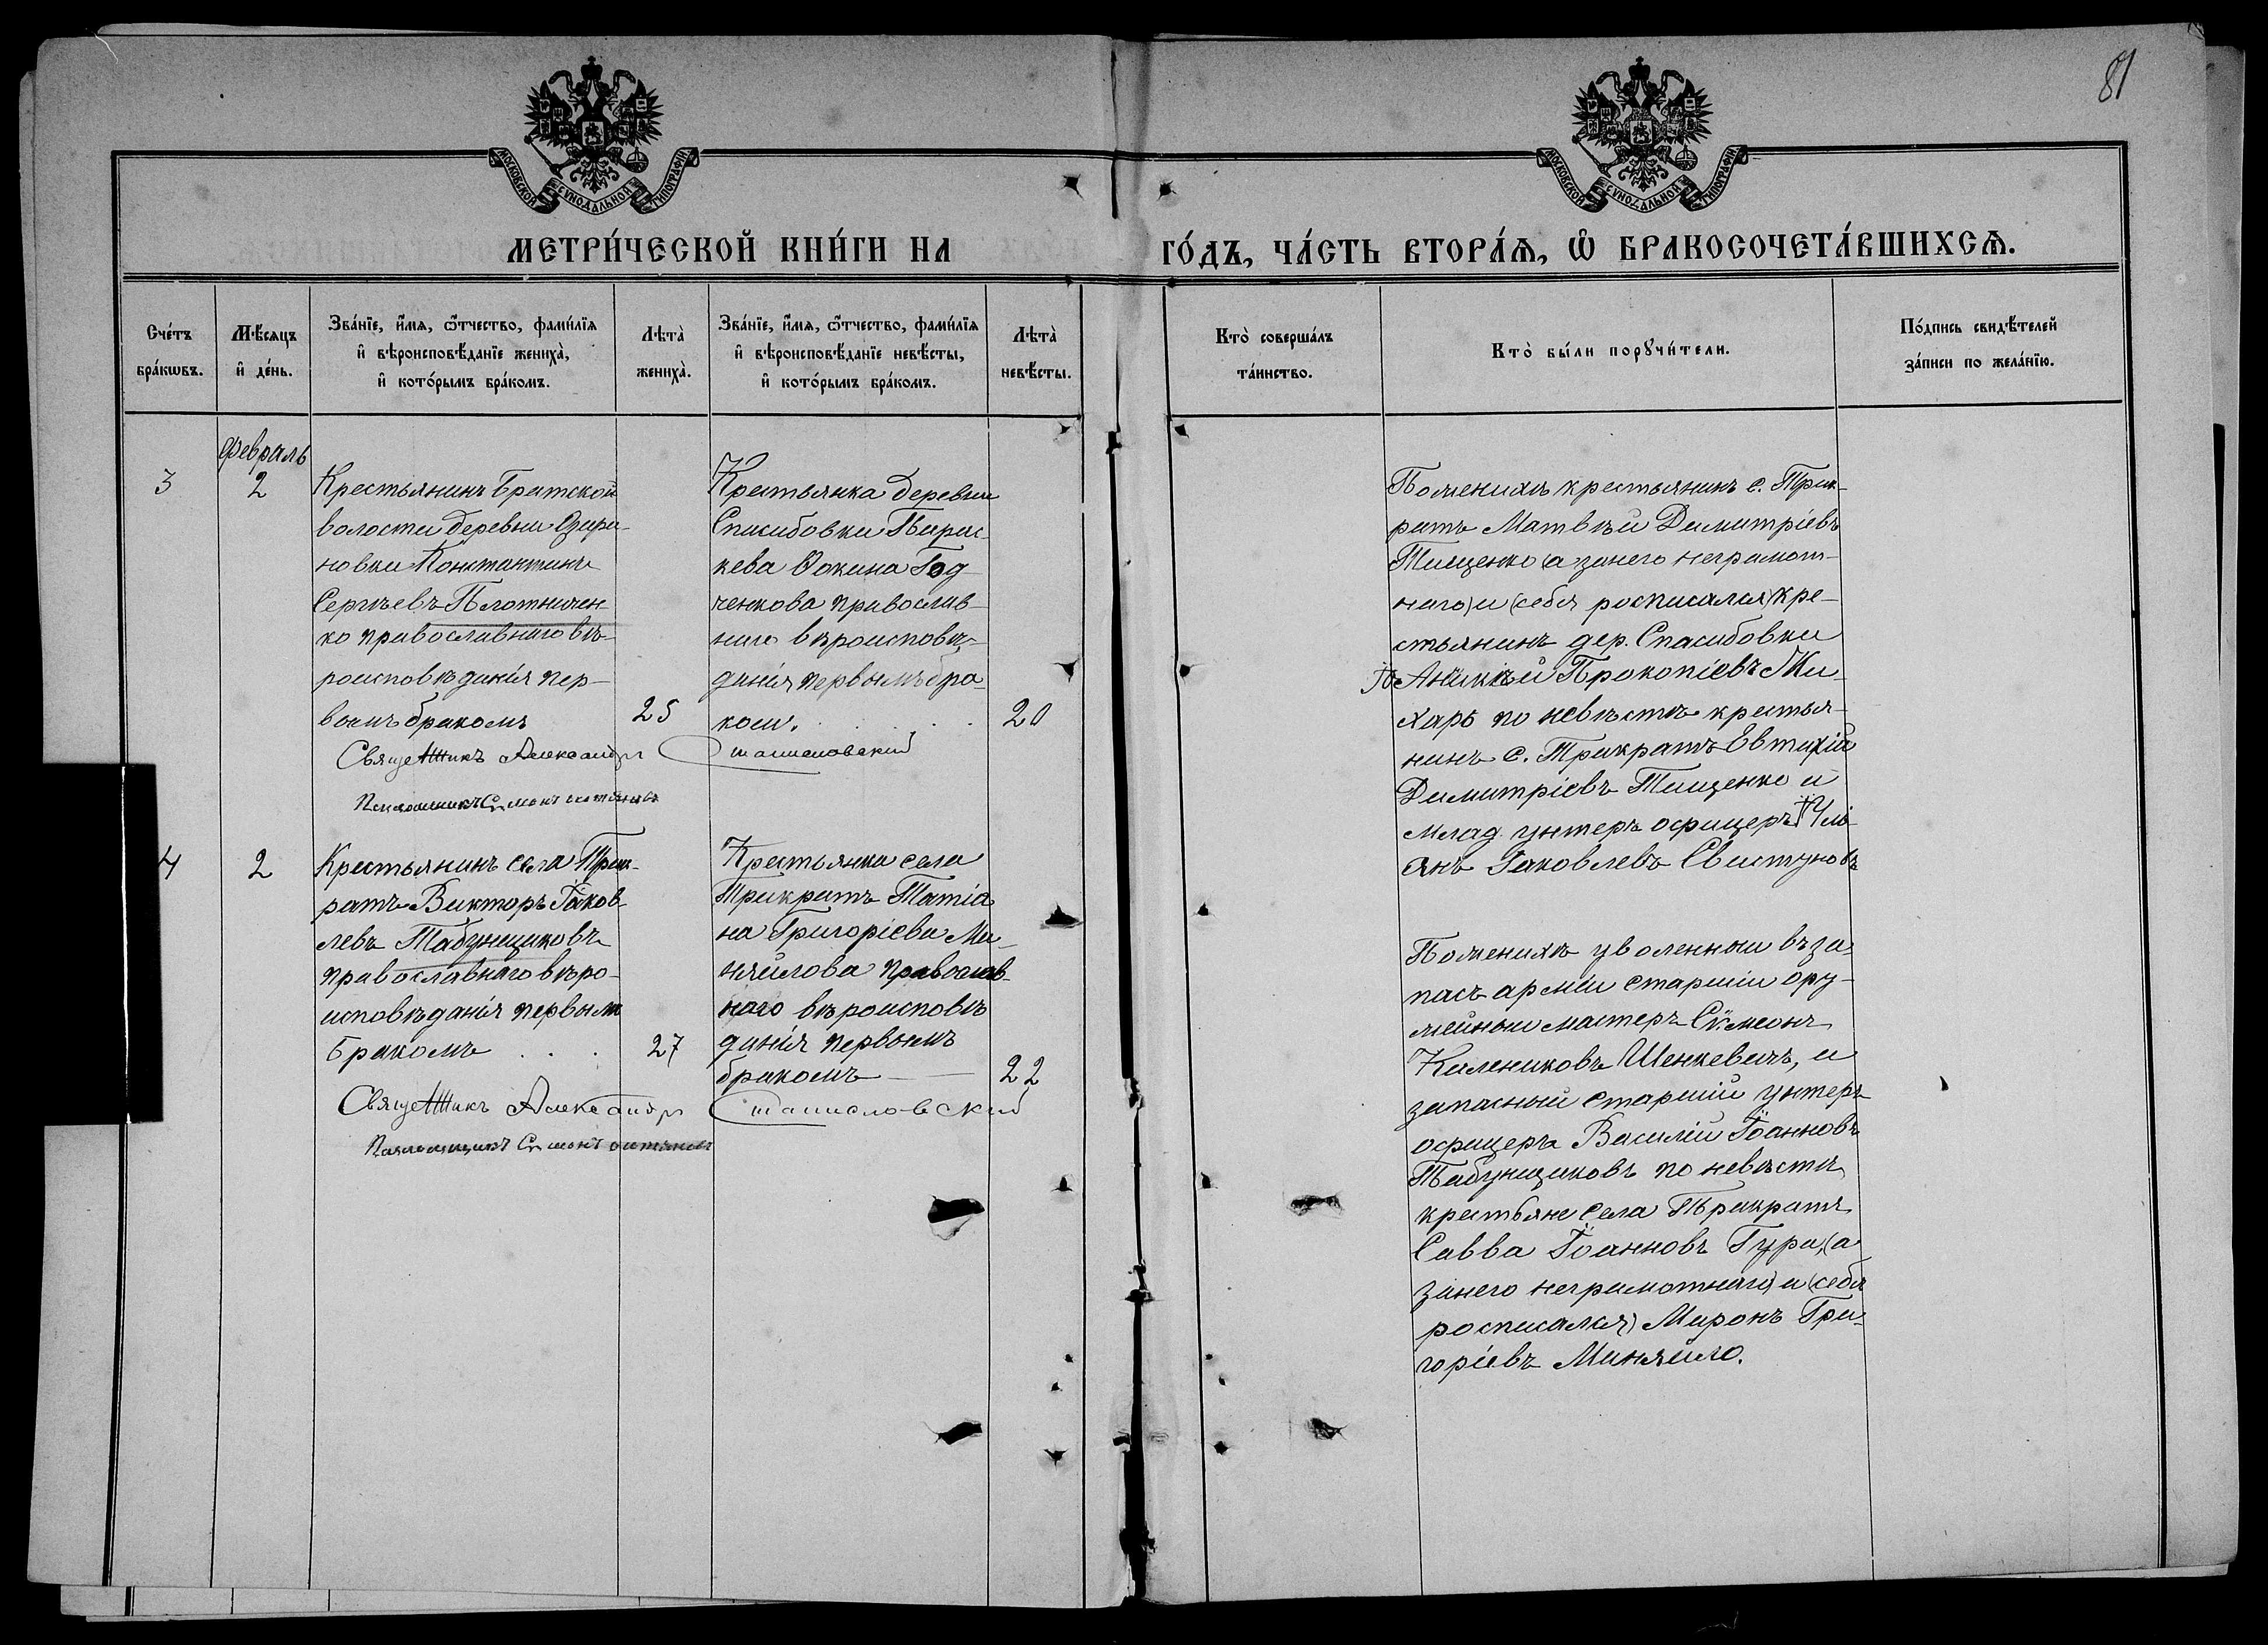 81
МОСКОВСКОЙ СѴНОДАЛЬНОЙ ТИПОГРАФІИ
МОСКОВСКОЙ СѴНОДАЛЬНОЙ ТИПОГРАФІИ
МЕТРИ́ЧЕСКОЙ КНИ́ГИ НА ГО́ДЪ, ЧА́СТЬ ВТОРА́Ѧ, Ѽ БРАКОСОЧЕТА́ВШИХСѦ.
Сче́тъ
бра́кѡвъ.
Мѣ́сяцъ
и҆ де́нь.
Зва́нїе, и҆́мѧ, ѻ҆́тчество, фами́лїѧ
и҆ вѣроисповѣ́данїе жениха̀,
и҆ кото́рымъ бра́комъ.
Лѣта̀
жениха̀.
Зва́нїе, и҆́мѧ, ѻ҆́тчество, фами́лїѧ
и҆ вѣроисповѣ́данїе невѣ́сты,
и҆ кото́рымъ бра́комъ.
Лѣта̀
невѣ́сты.
Кто̀ соверша́лъ
та́инство.
Кто̀ бы́ли порꙋчи́тели.
По́дпись свидѣ́телей
за́писи по жела́нїю.
Февраль
3
2
Крестьянинъ Братской
волости деревни Озири-
новки Константинъ
Сергѣевъ Плотничен
ко православнаго вѣ-
роисповѣданія пер-
вымъ бракомъ
25
Крестьянка деревни
Спасибовки Парас-
кева Ѳокина Год
ченкова православ-
наго вѣроисповѣ-
данія первымъ бра-
комъ.
20
Священникъ Александръ Станиславский
Псаломщикъ
По женихѣ крестьянинъ с. Трик-
ратъ Матвѣй Димитріевъ
Тищенко (а за него неграмот-
наго) и (себя росписался) кре-
стьянинъ дер. Спасибовки
Прокопіевъ Жи-
харь по невѣстѣ крестья-
нинъ с. Трикратъ Евтихій
Димитріевъ Тищенко и
млад. унтеръ офицеръ Уль-
янъ Іаковлевъ Свистуновъ
4
2
Крестьянинъ села Трик-
ратъ Викторъ Іаков-
левъ Табунщиковъ
православнаго вѣро-
исповѣданія первымъ
бракомъ
27
Крестьянка села
Трикратъ Татіа
на Григоріева Ми-
няйлова православ-
наго вѣроисповѣ
данія первымъ
бракомъ
22
Священникъ Александръ Станиславский
Псаломщикъ
По женихѣ уволенный въ за-
пасъ арміи старшій ору-
жейный мастеръ Сѵмеонъ
Калениковъ Шенкевичъ, и
запасный старшій унтеръ
офицеръ Василій Іоанновъ
Табунщиковъ по невѣстѣ
крестьяне села Трикратъ
Савва Іоанновъ Гура, (а
за него неграмотнаго) и (себя
росписался) Миронъ Гри-
горіевъ Миняйло.